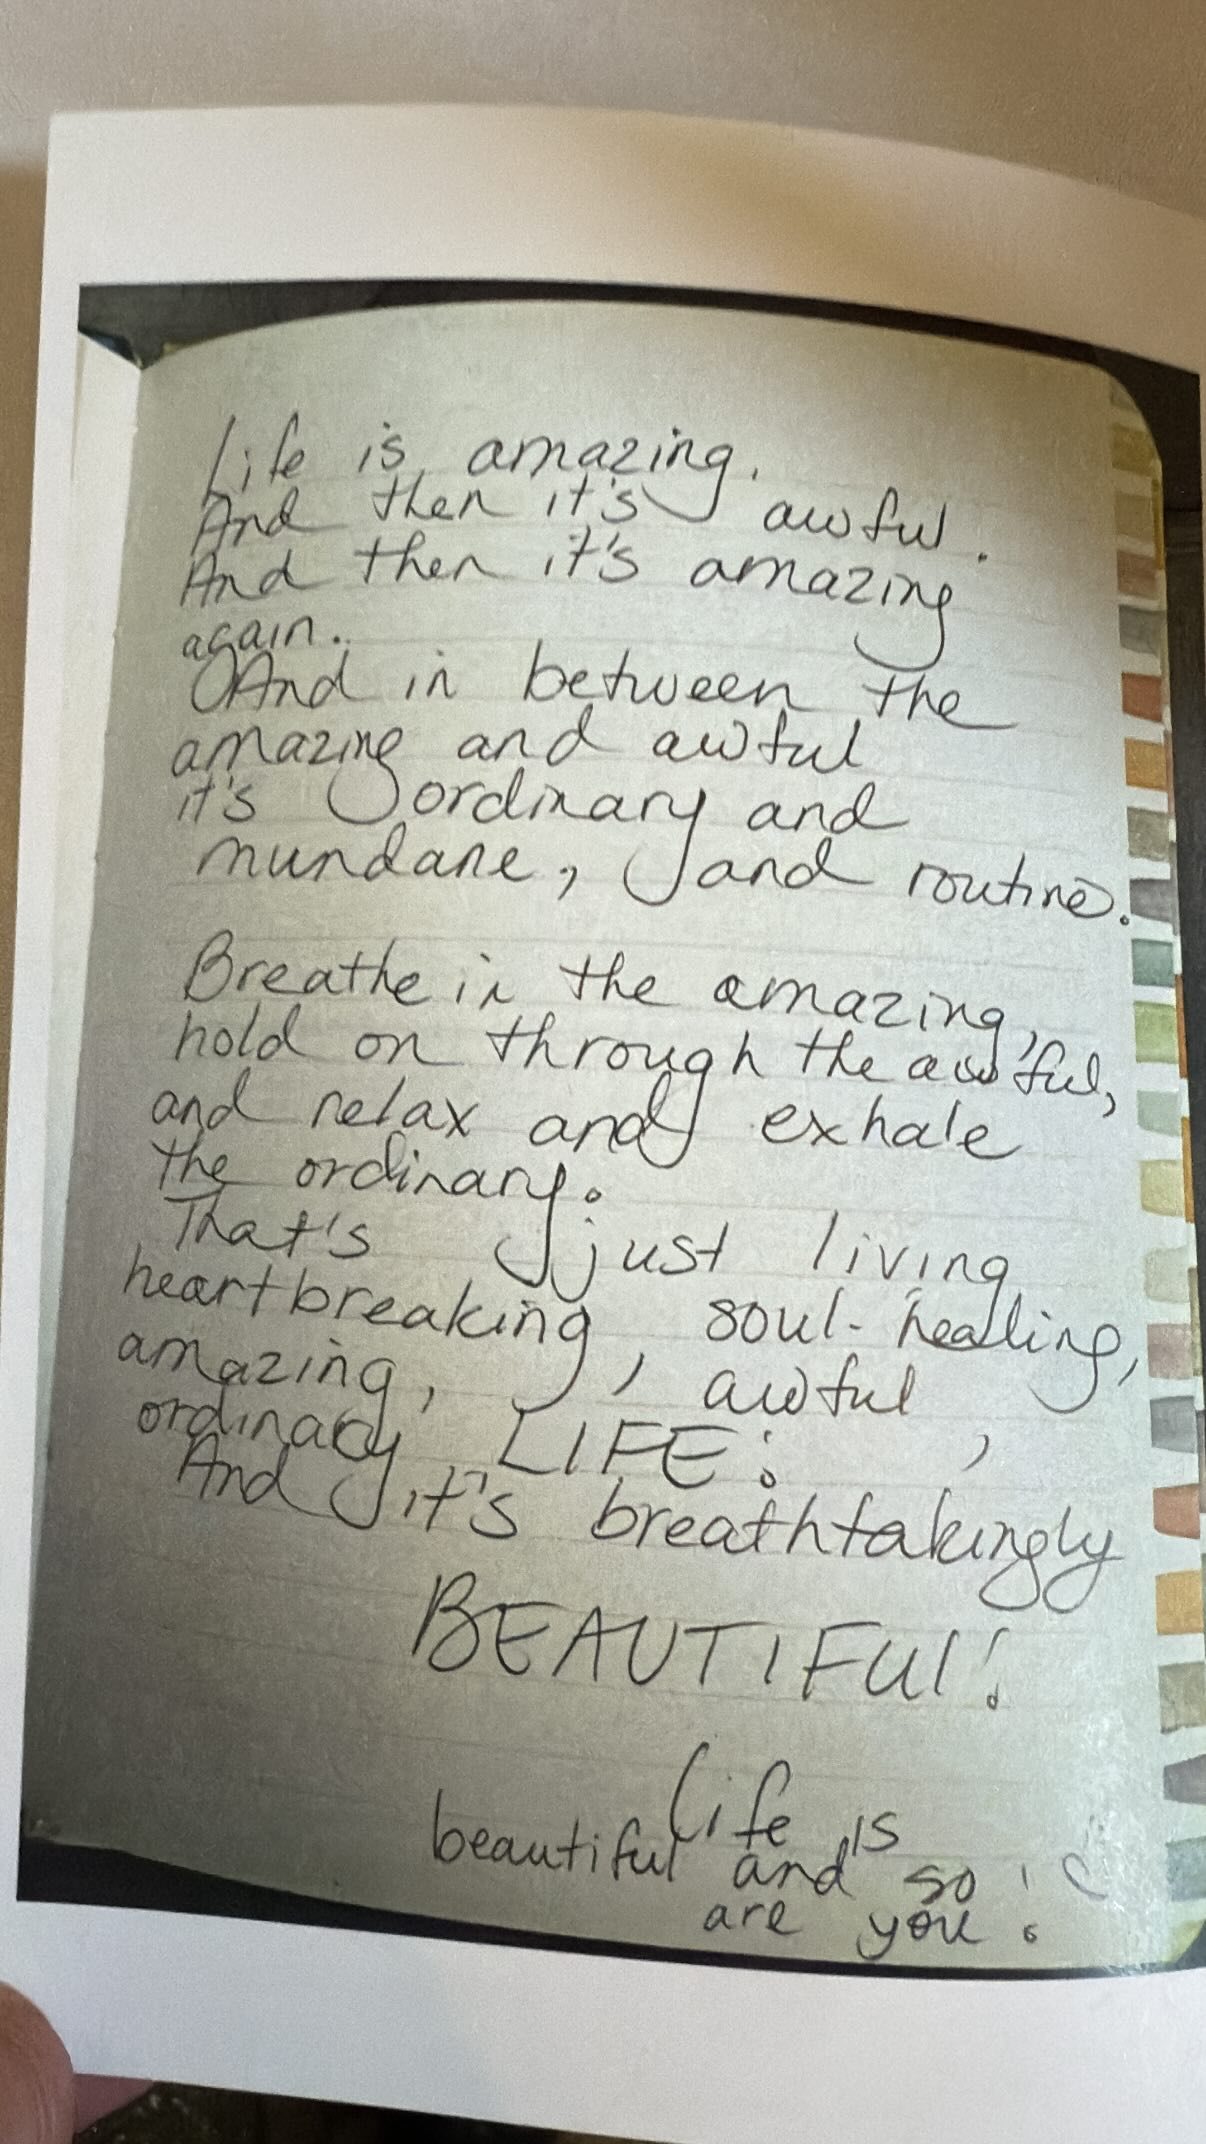 Life is amazing.
And then it's awful.
And then it's amazing
again.
And in between the
amazing and awful
it's ordinary and
mundane, and routine.
Breathe in the amazing,
hold on through the awful,
and relax and exhale
the ordinary.
That's just living
heartbreaking, soul-healing,
amazing, awful,
ordinary LIFE.
And it's breathtakingly
BEAUTIFUL!
Life is
beautiful and so
are you!